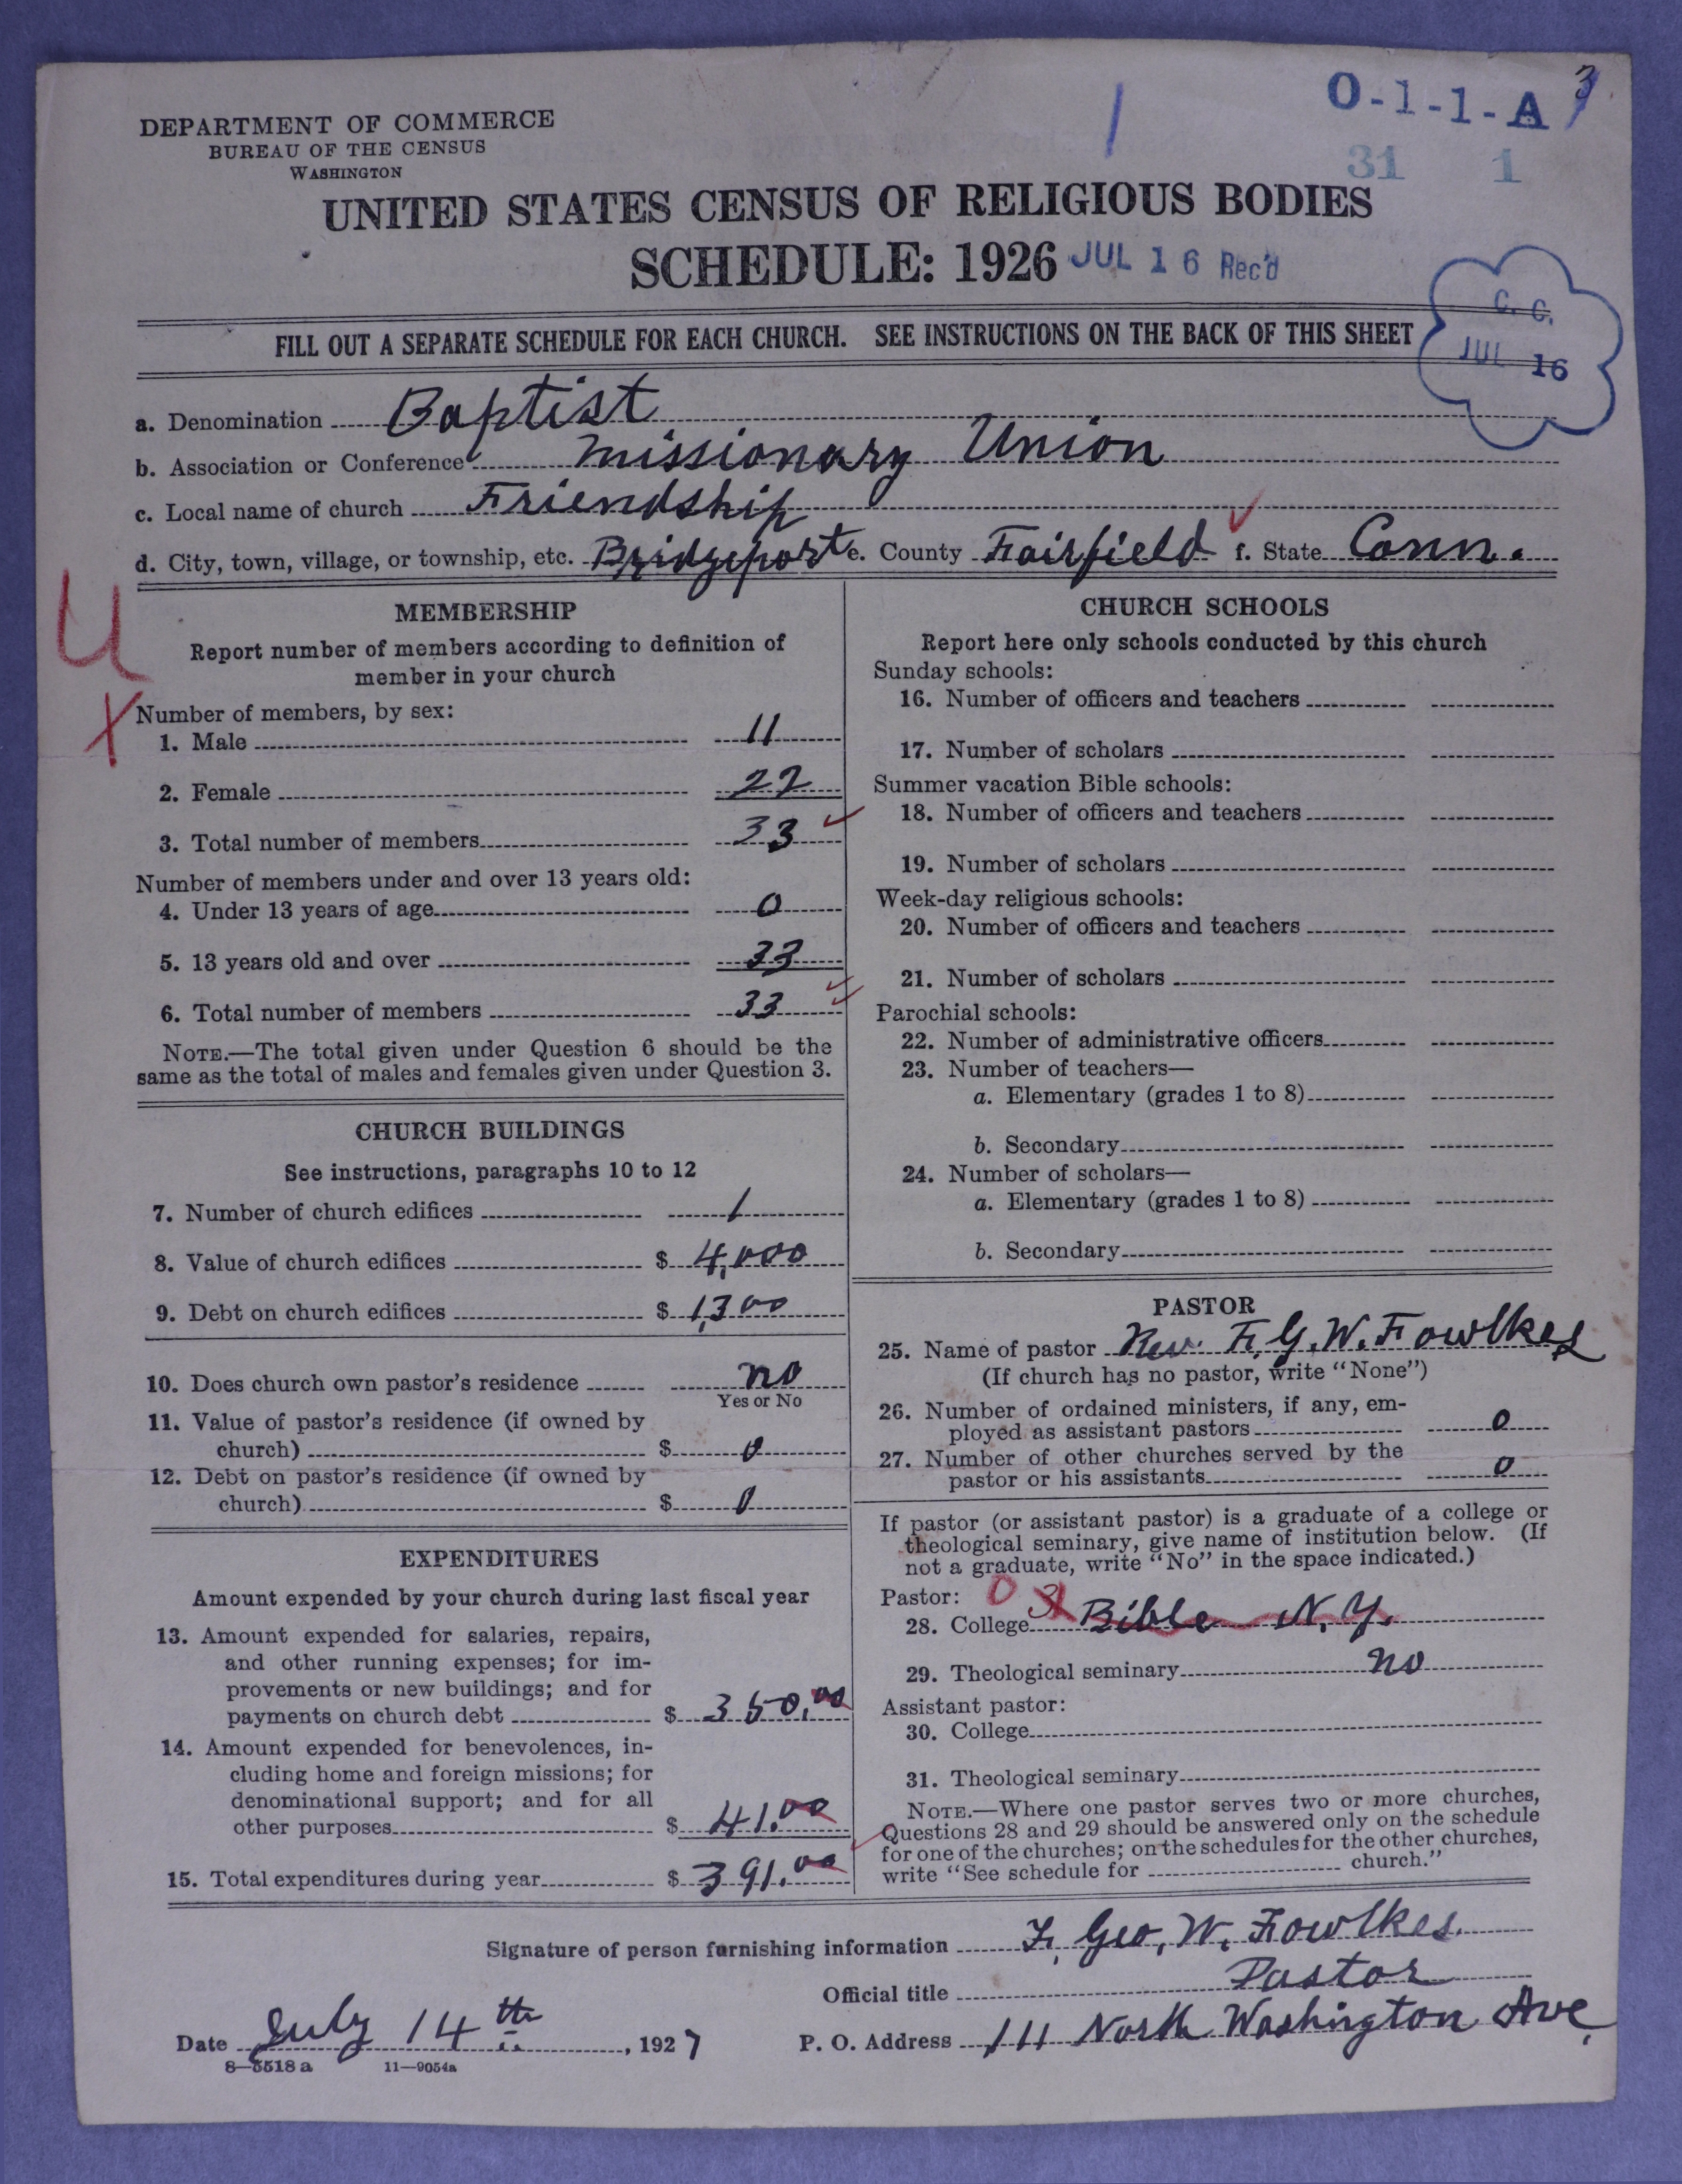 DEPARTMENT OF COMMERCE
BUREAU OF THE CENSUS
WASHINGTON
O-1-1-A
31 1
UNITED STATES CENSUS OF RELIGIOUS BODIES
SCHEDULE: 1926 JUL 16 Rec'd
C. C.
JUL 16
FILL OUT A SEPARATE SCHEDULE FOR EACH CHURCH. SEE INSTRUCTIONS ON THE BACK OF THIS SHEET
a. Denomination Baptist
b. Association or Conference Missionary Union
c. Local name of church Friendship
d. City, town, village, or township, etc. Bridgeport e. County Fairfield f. State Conn.
MEMBERSHIP
Report number of members according to definition of
member in your church
Number of members, by sex:
1. Male 11
2. Female 22
3. Total number of members 33
Number of members under and over 13 years old:
4. Under 13 years of age 0
5. 13 years old and over 33
6. Total number of members 33
NOTE.—The total given under Question 6 should be the
same as the total of males and females given under Question 3.
CHURCH BUILDINGS
See instructions, paragraphs 10 to 12
7. Number of church edifices 1
8. Value of church edifices $ 4,000
9. Debt on church edifices $ 1,300
10. Does church own pastor's residence no
Yes or No
11. Value of pastor's residence (if owned by
church) $ 0
12. Debt on pastor's residence (if owned by
church) $ 0
EXPENDITURES
Amount expended by your church during last fiscal year
13. Amount expended for salaries, repairs,
and other running expenses; for im-
provements or new buildings; and for
payments on church debt $ 350.00
14. Amount expended for benevolences, in-
cluding home and foreign missions; for
denominational support; and for all
other purposes $ 41.00
15. Total expenditures during year $ 391.00
CHURCH SCHOOLS
Report here only schools conducted by this church
Sunday schools:
16. Number of officers and teachers
17. Number of scholars
Summer vacation Bible schools:
18. Number of officers and teachers
19. Number of scholars
Week-day religious schools:
20. Number of officers and teachers
21. Number of scholars
Parochial schools:
22. Number of administrative officers
23. Number of teachers—
a. Elementary (grades 1 to 8)
b. Secondary
24. Number of scholars—
a. Elementary (grades 1 to 8)
b. Secondary
PASTOR
25. Name of pastor Rev. F. G. W. Fowlkes
(If church has no pastor, write "None")
26. Number of ordained ministers, if any, em-
ployed as assistant pastors 0
27. Number of other churches served by the
pastor or his assistants 0
If pastor (or assistant pastor) is a graduate of a college or
theological seminary, give name of institution below. (If
not a graduate, write "No" in the space indicated.)
Pastor: 0
28. College Bible N. Y.
29. Theological seminary no
Assistant pastor:
30. College
31. Theological seminary
NOTE.—Where one pastor serves two or more churches,
Questions 28 and 29 should be answered only on the schedule
for one of the churches; on the schedules for the other churches,
write "See schedule for church."
Signature of person furnishing information F. Geo. W. Fowlkes
Official title Pastor
Date July 14th, 1927 P. O. Address 111 North Washington Ave.
8—5518 a 11—9054a